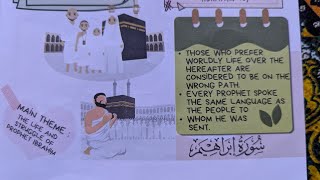 • THOSE WHO PREFER
WORLDLY LIFE OVER THE
HEREAFTER ARE
CONSIDERED TO BE ON THE
WRONG PATH.
• EVERY PROPHET SPOKE
THE SAME LANGUAGE AS
THE PEOPLE TO
• WHOM HE WAS
SENT.
MAIN THEME:
THE LIFE AND
STRUGGLE OF
PROPHET IBRAHIM
سُورَةُ إِبْرَاهِيمَ